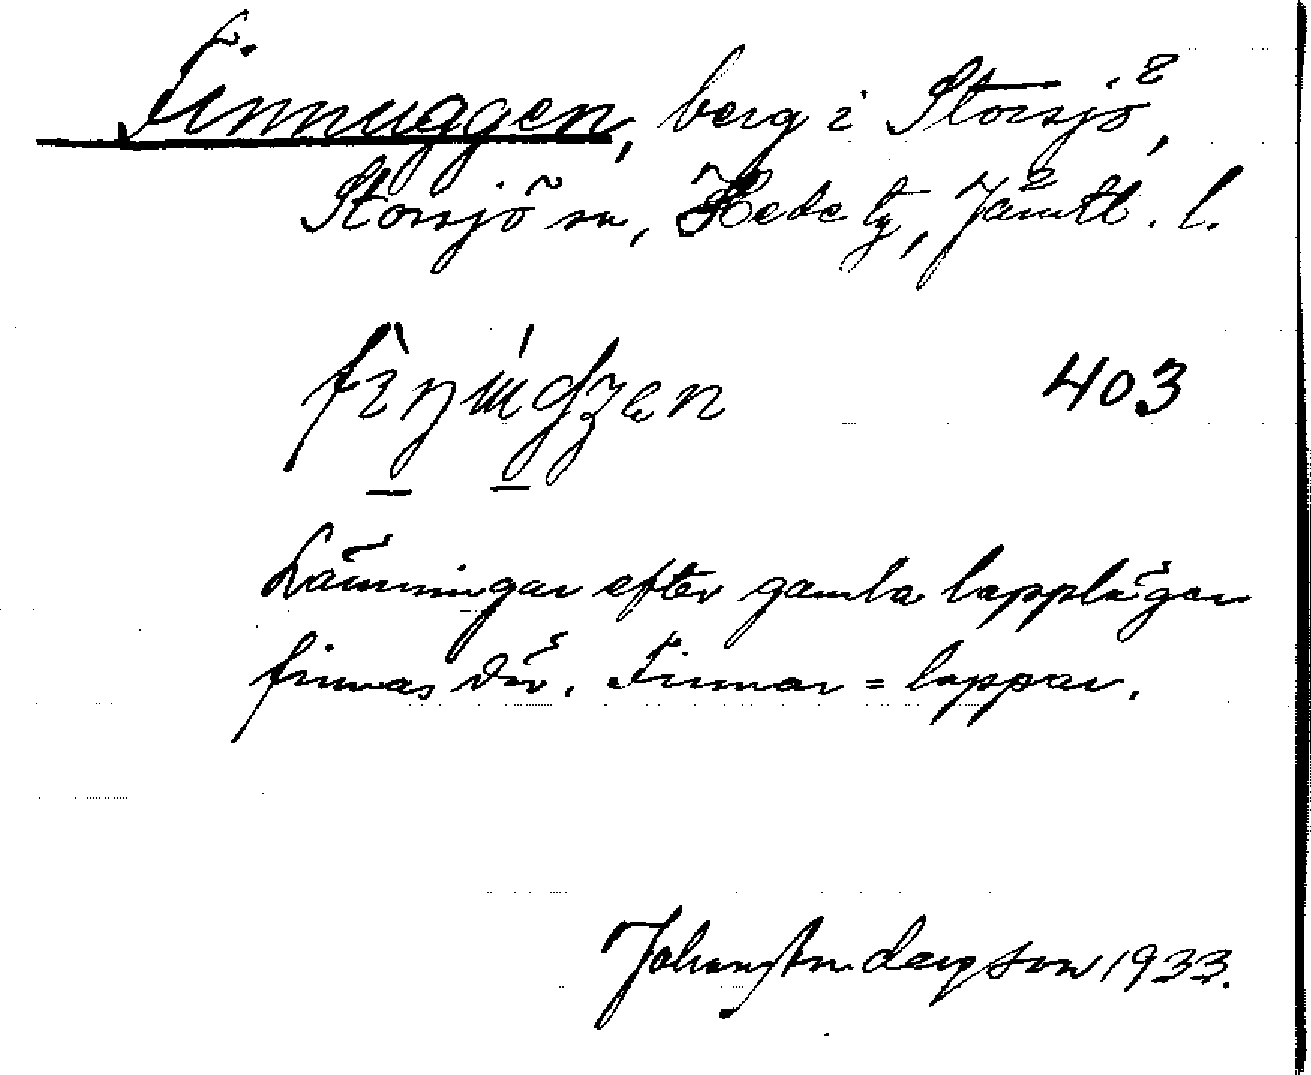 Finnuggen, berg i Storsjö,
Storsjö sn, Hede tg, Jämtl. l.
403
Lämningar efter gamla lapplägar
finnas där. Finnar = lappar.
1933.